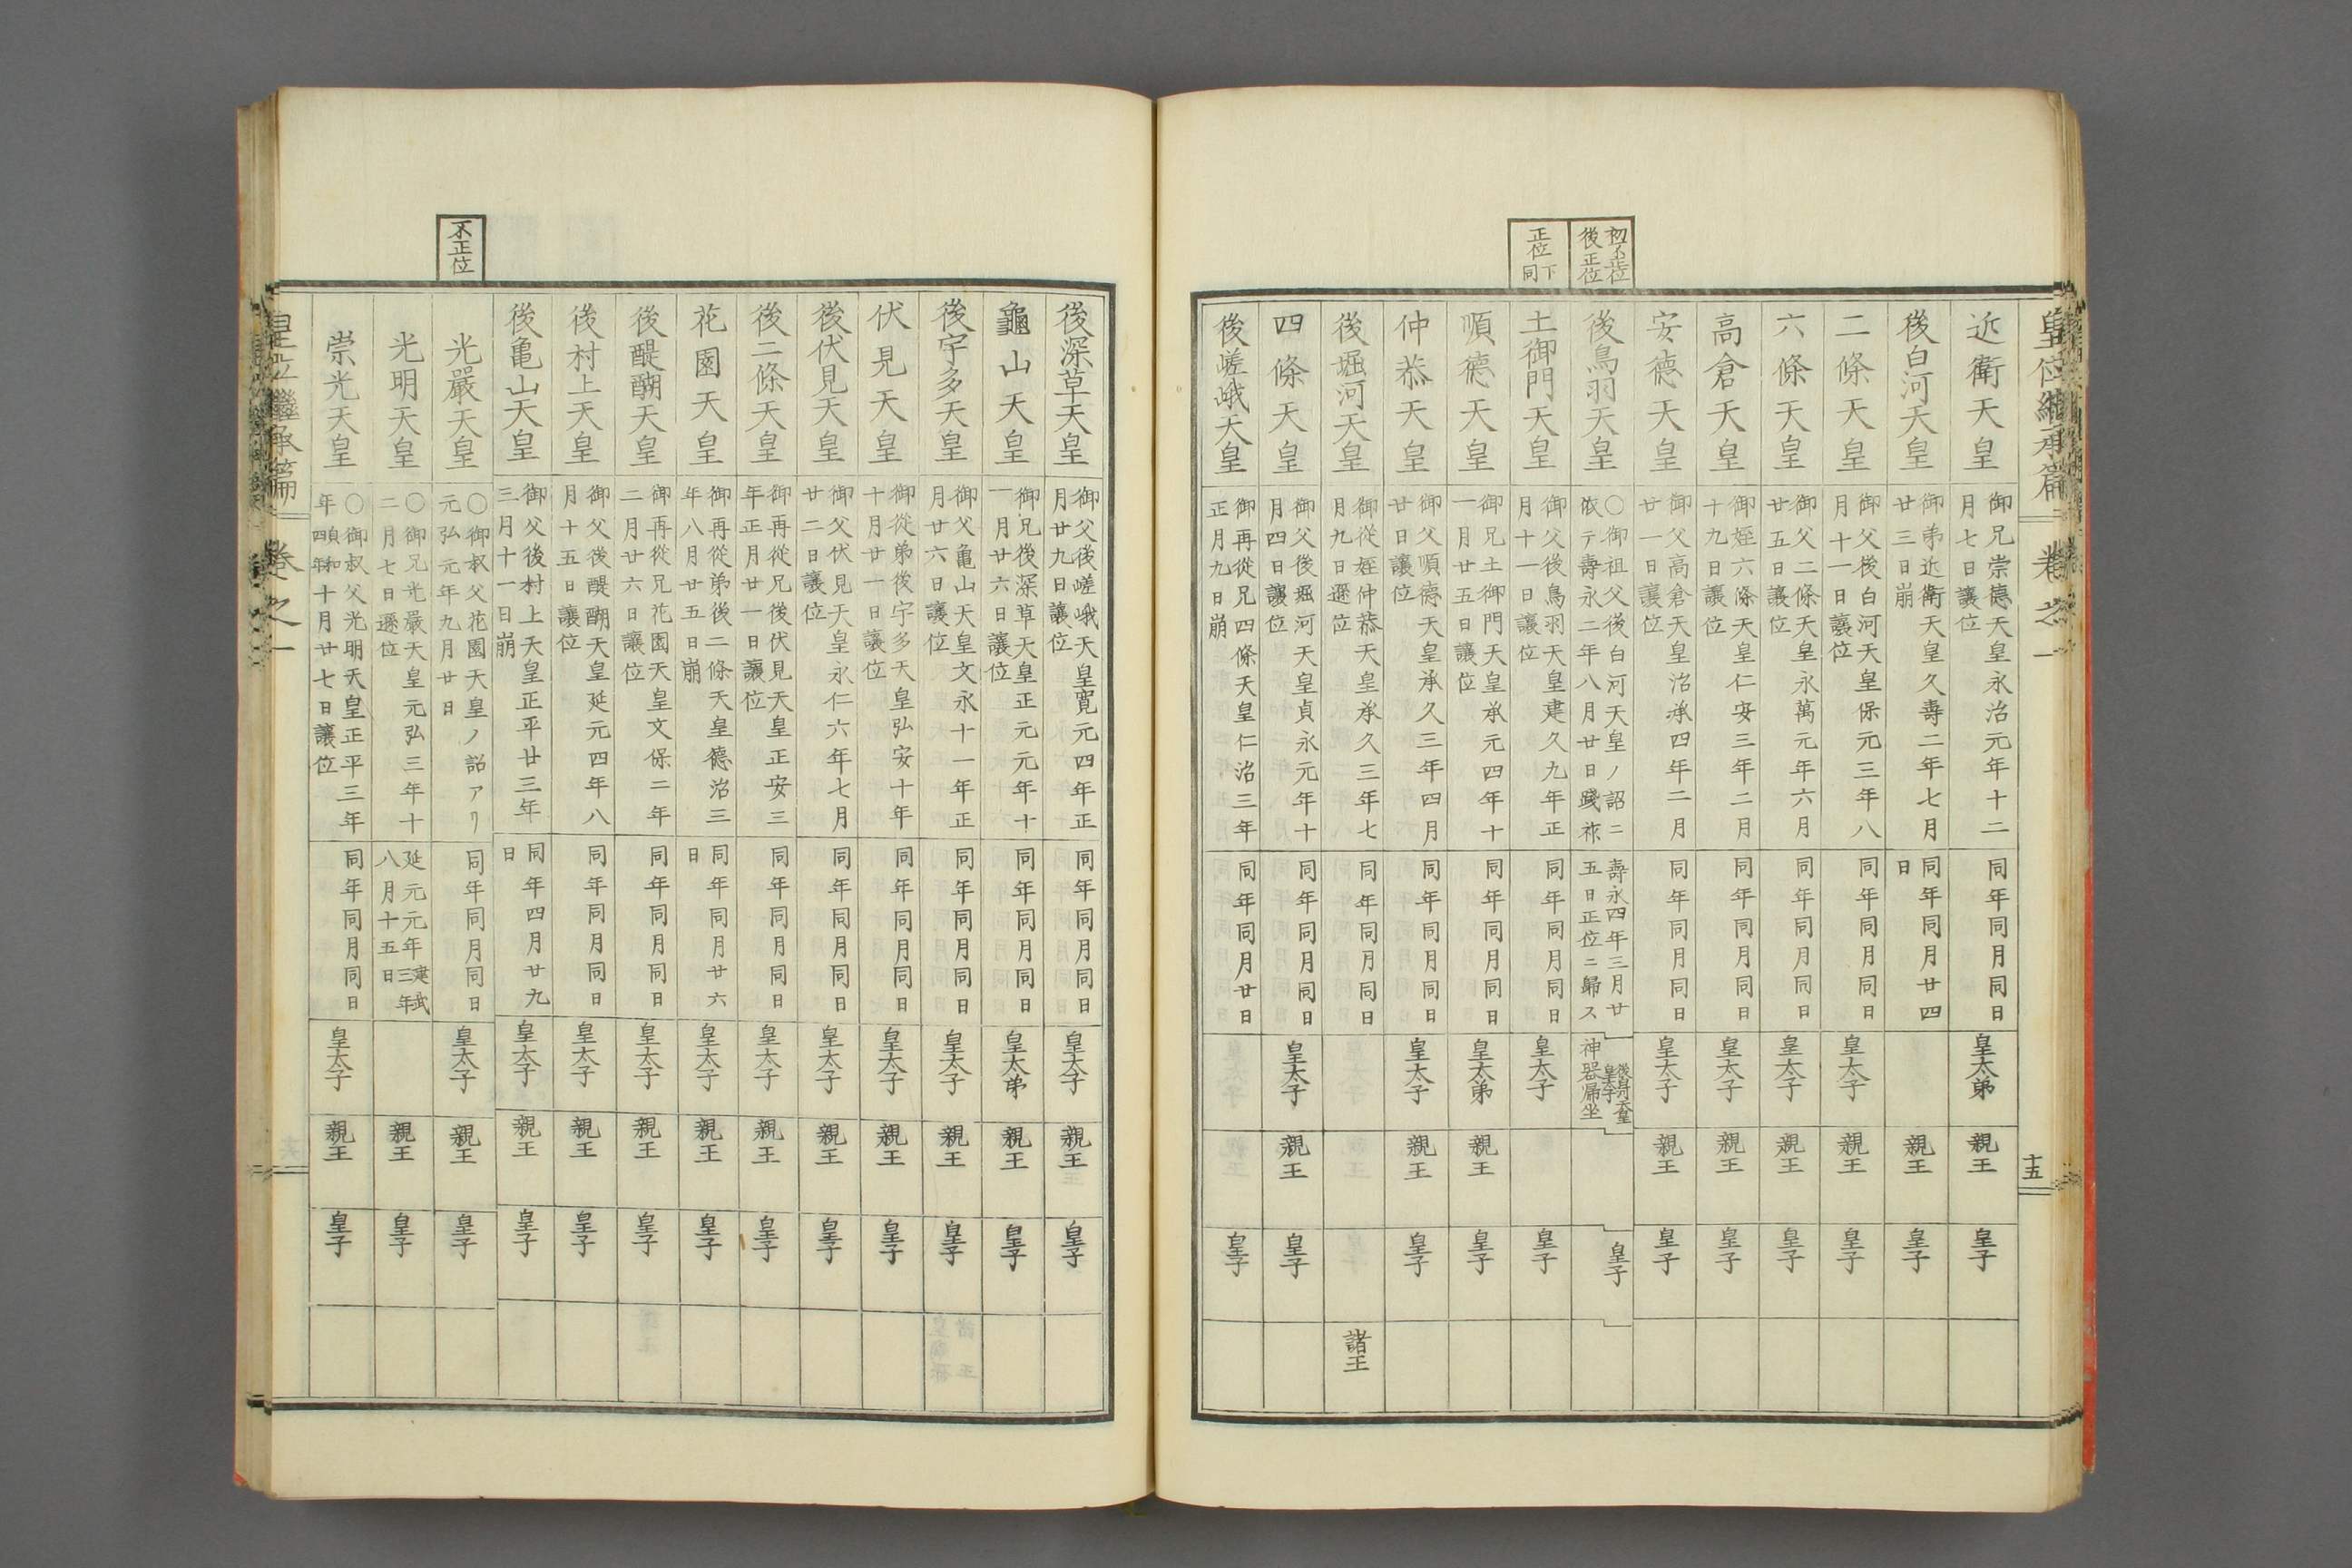 皇位繼承篇 卷之一
十五
近衛天皇
御兄崇德天皇永治元年十二
月七日讓位
同年同月同日
皇太弟
親王
皇子
後白河天皇
御弟近衛天皇久壽二年七月
廿三日崩
同年同月廿四
日
親王
皇子
二條天皇
御父後白河天皇保元三年八
月十一日讓位
同年同月同日
皇太子
親王
皇子
六條天皇
御父二條天皇永萬元年六月
廿五日讓位
同年同月同日
皇太子
親王
皇子
高倉天皇
御姪六條天皇仁安三年二月
十九日讓位
同年同月同日
皇太子
親王
皇子
安德天皇
御父高倉天皇治承四年二月
廿一日讓位
同年同月同日
皇太子
親王
皇子
初不正位
後正位
後鳥羽天皇
〇御祖父後白河天皇ノ詔ニ
依テ壽永二年八月廿日踐祚
壽永四年三月廿
五日正位ニ歸ス
神器歸坐
皇子
正位下
同
土御門天皇
御父後鳥羽天皇建久九年正
月十一日讓位
同年同月同日
皇太子
皇子
順德天皇
御兄土御門天皇承元四年十
一月廿五日讓位
同年同月同日
皇太弟
親王
皇子
仲恭天皇
御父順德天皇承久三年四月
廿日讓位
同年同月同日
皇太子
親王
皇子
後堀河天皇
御從姪仲恭天皇承久三年七
月九日遜位
同年同月同日
諸王
四條天皇
御父後堀河天皇貞永元年十
月四日讓位
同年同月同日
皇太子
親王
皇子
後嵯峨天皇
御再從兄四條天皇仁治三年
正月九日崩
同年同月廿日
皇子
後深草天皇
御父後嵯峨天皇寬元四年正
月廿九日讓位
同年同月同日
皇太子
親王
皇子
龜山天皇
御兄後深草天皇正元元年十
一月廿六日讓位
同年同月同日
皇太弟
親王
皇子
後宇多天皇
御父亀山天皇文永十一年正
月廿六日讓位
同年同月同日
皇太子
親王
皇子
伏見天皇
御從弟後宇多天皇弘安十年
十月廿一日讓位
同年同月同日
皇太子
親王
皇子
後伏見天皇
御父伏見天皇永仁六年七月
廿二日讓位
同年同月同日
皇太子
親王
皇子
後二條天皇
御再從兄後伏見天皇正安三
年正月廿一日讓位
同年同月同日
皇太子
親王
皇子
花園天皇
御再從弟後二條天皇德治三
年八月廿五日崩
同年同月廿六
日
皇太子
親王
皇子
後醍醐天皇
御再從兄花園天皇文保二年
二月廿六日讓位
同年同月同日
皇太子
親王
皇子
後村上天皇
御父後醍醐天皇延元四年八
月十五日讓位
同年同月同日
皇太子
親王
皇子
後亀山天皇
御父後村上天皇正平廿三年
三月十一日崩
同年四月廿九
日
皇太子
親王
皇子
不正位
光嚴天皇
〇御叔父花園天皇ノ詔アリ
元弘元年九月廿日
同年同月同日
皇太子
親王
皇子
光明天皇
〇御兄光嚴天皇元弘三年十
二月七日遜位
延元元年建武三年
八月十五日
親王
皇子
崇光天皇
〇御叔父光明天皇正平三年
年貞和四年十月廿七日讓位
同年同月同日
皇太子
親王
皇子
皇位繼承篇 卷之一